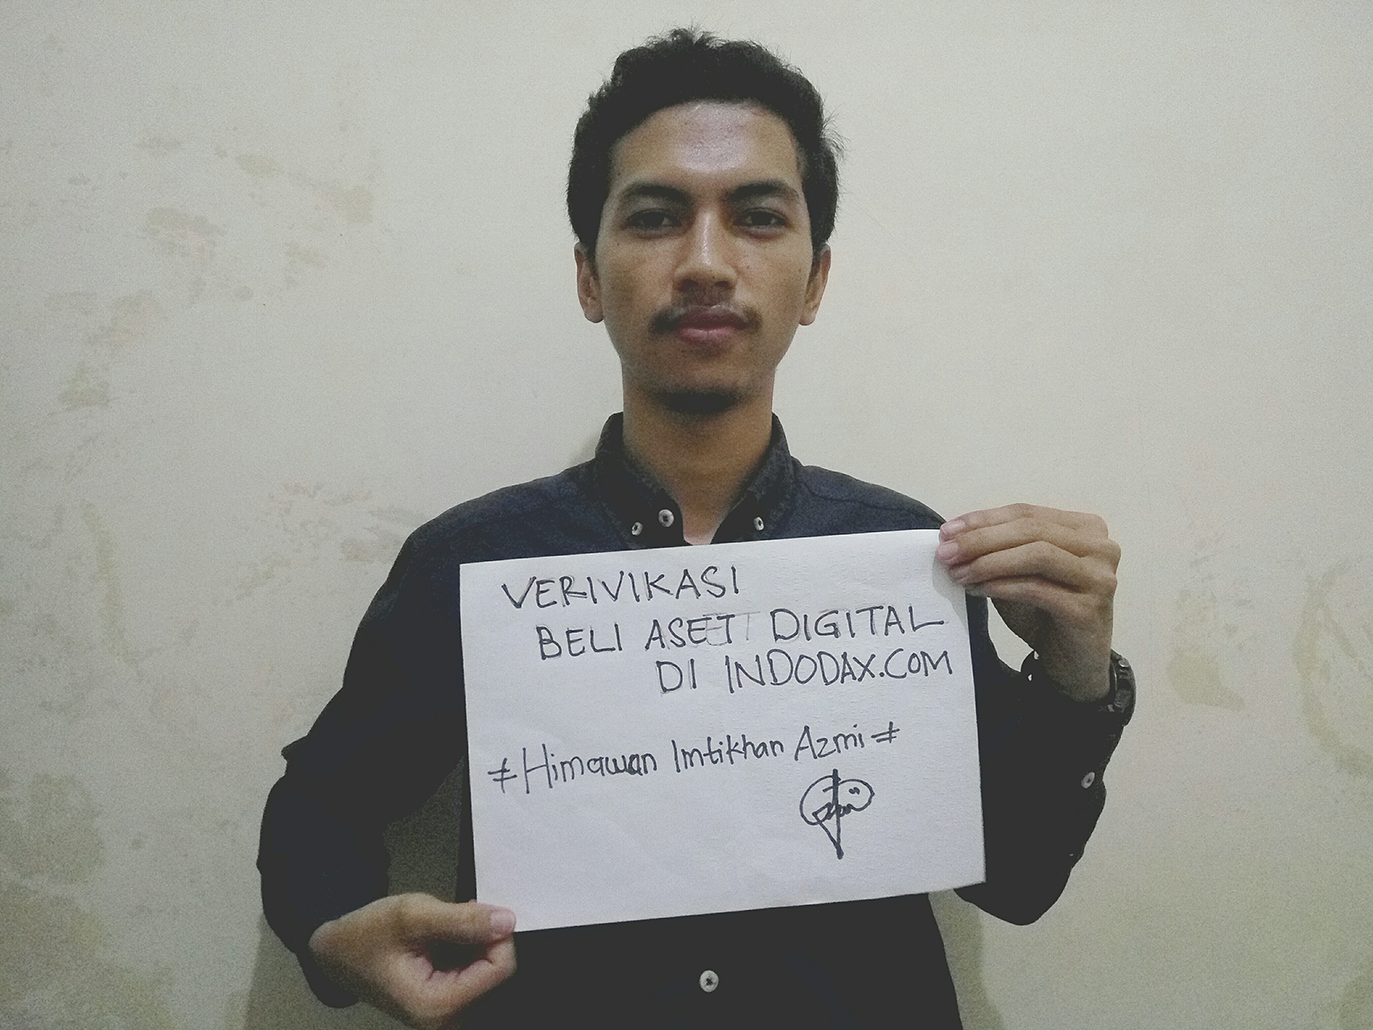 VERIVIKASI
BELI ASET DIGITAL
DI INDODAX.COM
≠Himawan Imtikhan Azmi≠